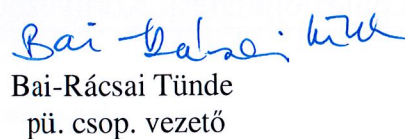 Bai-Rácsai Tünde
Bai-Rácsai Tünde
pü. csop. vezető